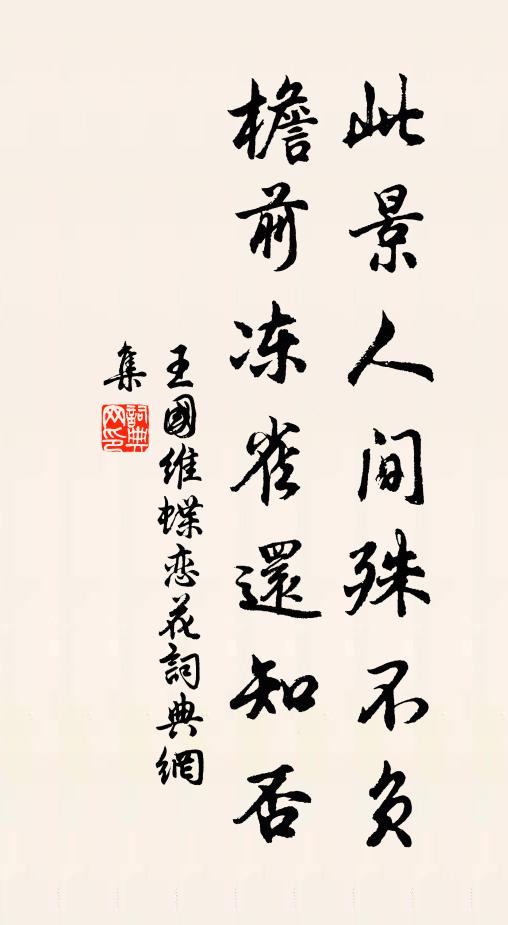 此景人间殊不负
檐前冻雀還知否
王國维蝶恋花詞典網
集
詞典网印